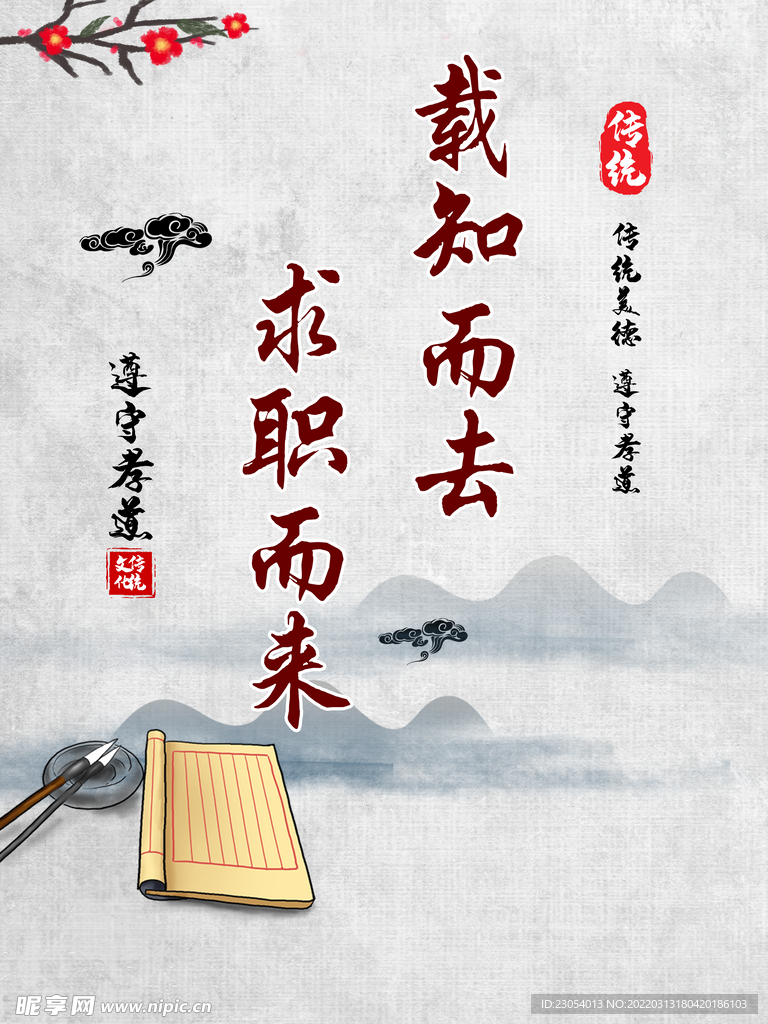 传统
传统美德 遵守孝道
载知而去
求职而来
遵守孝道
传统
文化
昵享网 www.nipic.cn
ID:23054013 NO:20220313180420186103